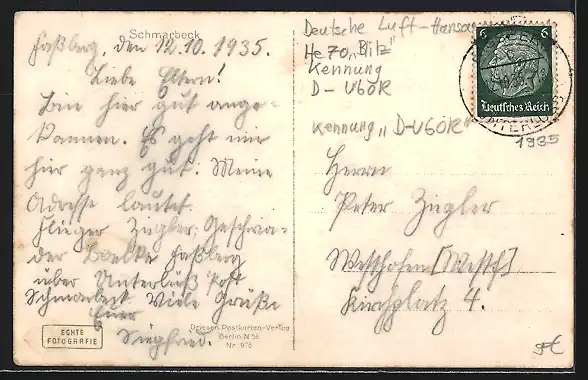 Schmarbeck
Faßberg, den 12.10.1935.
Liebe Eltern!
Bin hier gut ange-
kommen. Es geht mir
hier ganz gut. Meine
Adresse lautet.
Flieger Ziegler. Geschwa-
der Boelke Faßberg
über Unterlüß Post
Schmarbeck Viele Grüße
Euer
Siegfried.
ECHTE
FOTOGRAFIE
Driesen Postkarten-Verlag
Berlin N 56
Nr. 976
Deutsche Luft-Hansa
He 70 „Blitz"
Kennung
D-UBOR
Kennung „D-UBOR"
6 6
Deutsches Reich
1935
Herrn
Peter Ziegler
Westhofen [Westf]
Kirchplatz 4.